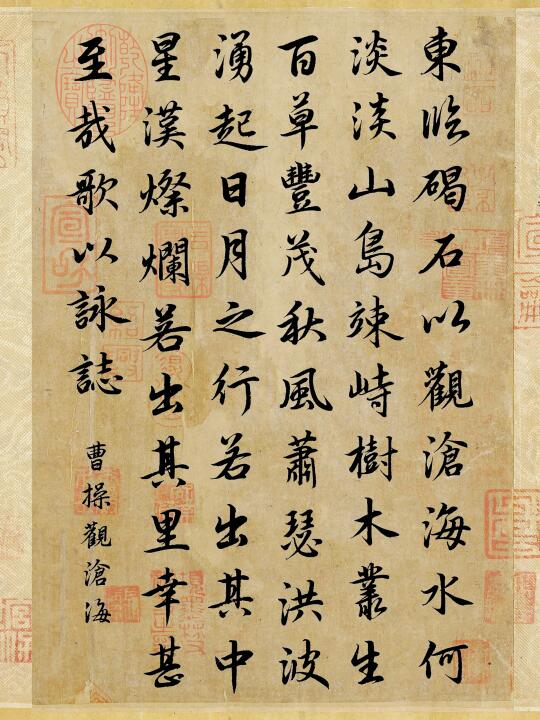 東臨碣石以觀滄海水何
淡淡山島竦峙樹木叢生
百草豐茂秋風蕭瑟洪波
湧起日月之行若出其中
星漢燦爛若出其里幸甚
至哉歌以詠誌
曹操觀滄海